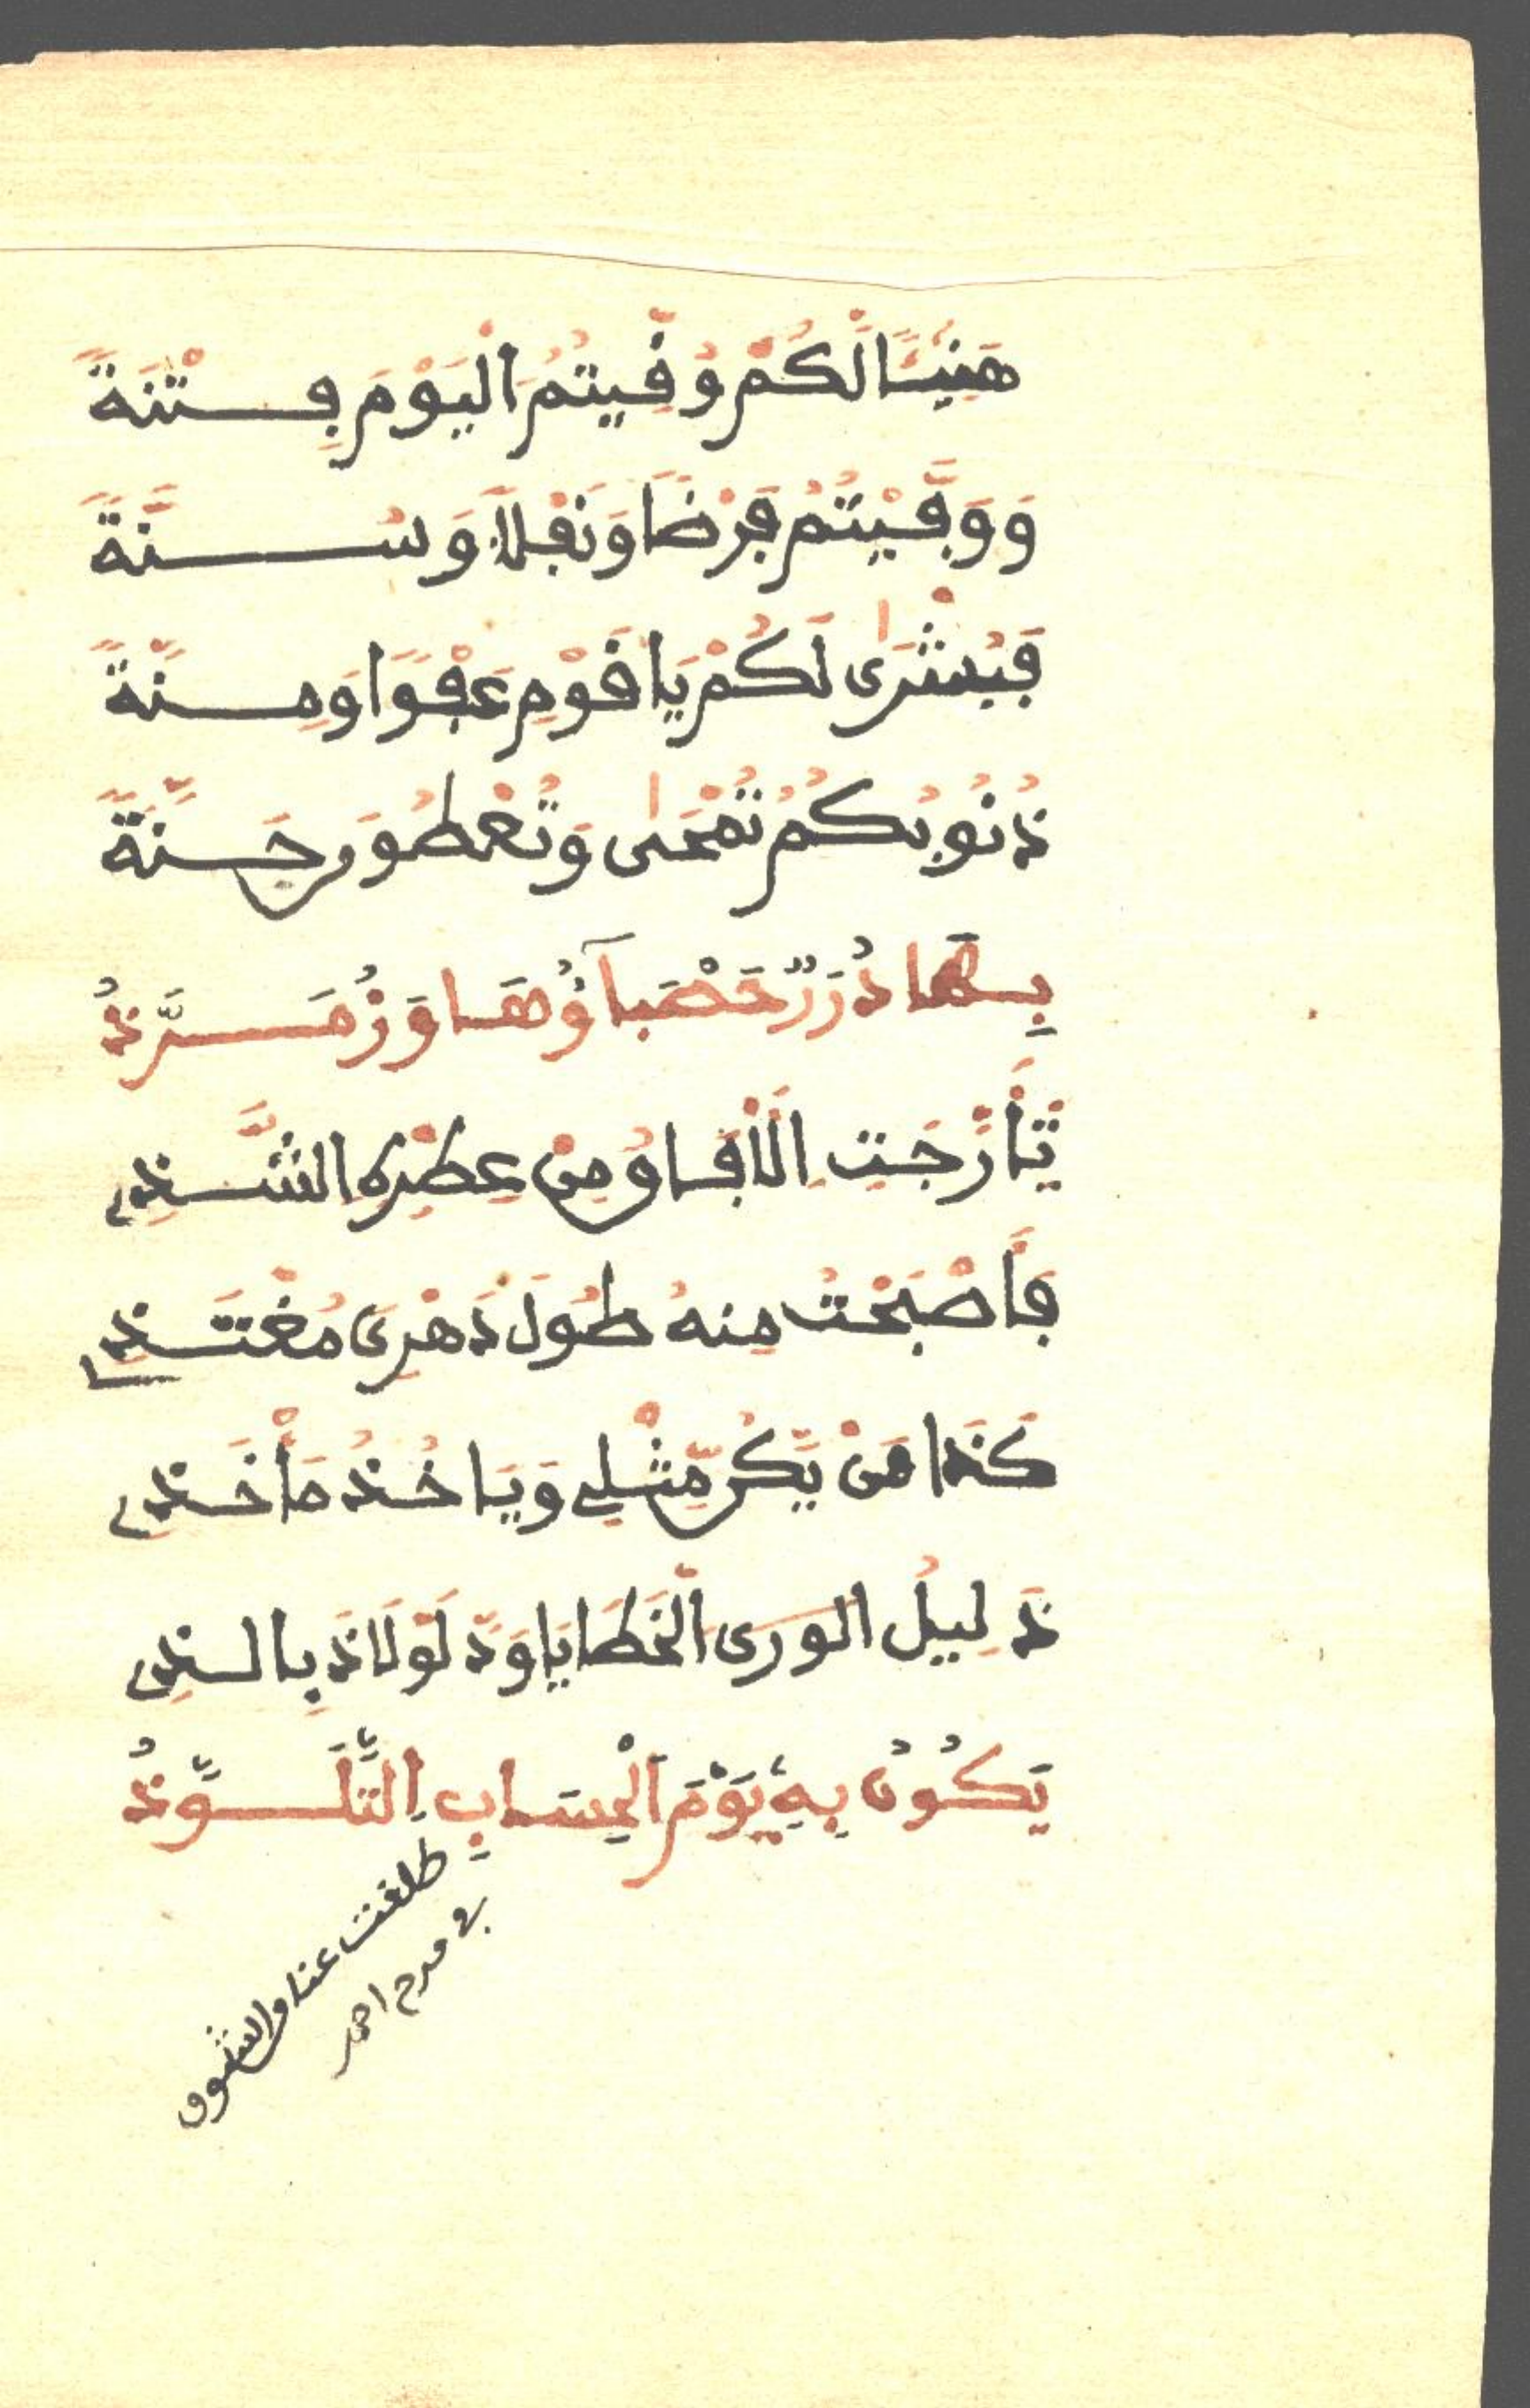 هَنِيئًا لَّكُمْ وُقِّيتُمُ الْيَوْمَ فِتْنَةً
وَوَفَّيْتُمُ فَرْضًا وَنَفْلًا وَسُنَّةً
فَبُشْرَىٰ لَكُمْ يَا قَوْمِ عَفْوًا وَمِنَّةً
ذُنُوبُكُمُ تُمْحَىٰ وَتُعْطَوْنَ جَنَّةً
بِهَا دُرَرٌ حَصْبَآؤُهَا وَزُمَرَّذُ
تَأَرَّجَتِ الْأَفَاقُ مِنْ عِطْرِهِ الشَّذِي
فَأَصْبَحْتُ مِنهُ طُولَ دَهْرِي مُغْتَذِ
كَذَا مَنْ يَّكُن مِّثْلِي وَيَاخُذُ مَأْخَذِي
ذَلِيلُ الوَرَى الْخَطَايَا وَدَّ لَوْ لَاذَ بِالذِي
يَكُونُ بِهِ يَوْمَ الْحِسَابِ التَّلَوُّذُ
طلقت عنان الشوق
في مدح احمد